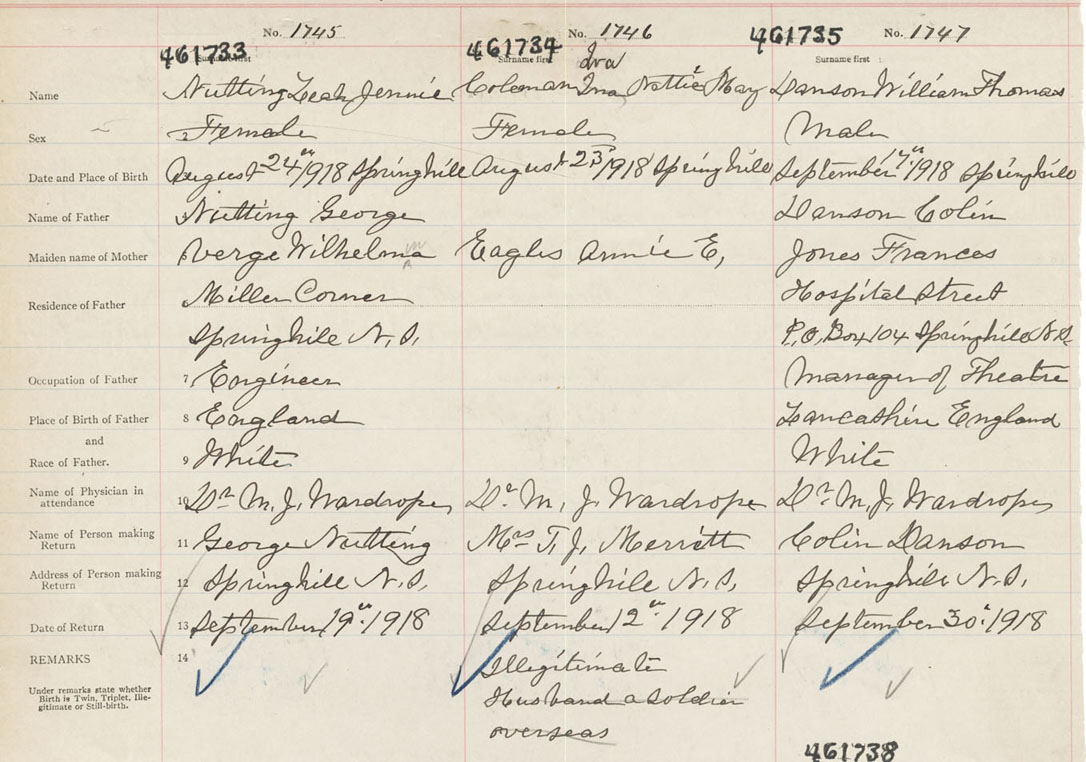 No. 1745 No. 1746 No. 1747
461733 461734 461735
Surname first Surname first Surname first
Iva
Name Nutting Leah Jennie Coleman Ina Nattie May Danson William Thomas
Sex Female Female Male
Date and Place of Birth August 24th 1918 Springhill August 23 1918 Springhill September 17th 1918 Springhill
Name of Father Nutting George Danson Colin
Maiden name of Mother Verge Wilhelma Eagles Annie E, Jones Frances
Residence of Father 6 Miller Corner Hospital Street
Springhill N.S. P.O. Box 104 Springhill N.S.
Occupation of Father 7 Engineer Manager of Theatre
Place of Birth of Father 8 England Lancashire England
and
Race of Father. 9 White White
Name of Physician in attendance 10 Dr M. J. Wardrope Dr M. J. Wardrope Dr M. J. Wardrope
Name of Person making Return 11 George Nutting Mrs T. J. Merritt Colin Danson
Address of Person making Return 12 Springhill N.S. Springhill N.S. Springhill N.S.
Date of Return 13 September 19th 1918 September 12th 1918 September 30th 1918
REMARKS 14 Illegitimate
Under remarks state whether Birth is Twin, Triplet, Ille-
gitimate or Still-birth.
Husband a soldier
overseas
461738